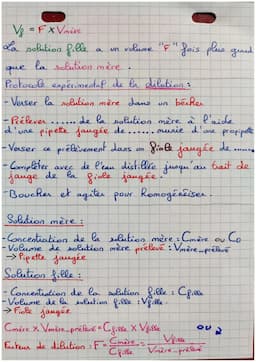 Vf = F x Vmère
La solution fille a un volume "F" fois plus grand
que la solution mère.
Protocole expérimental de la dilution :
- Verser la solution mère dans un bécher
- Prélever ...... de la solution mère à l'aide
d'une pipette jaugée de ...... munie d'une propipette
- Verser ce prélèvement dans une fiole jaugée de ......
- Compléter avec de l'eau distillée jusqu'au trait de
jauge de la fiole jaugée.
- Boucher et agiter pour homogénéiser.
Solution mère :
- Concentration de la solution mère : Cmère ou C0
- Volume de solution mère prélevé : Vmère_prélevé
→ Pipette jaugée
Solution fille :
- Concentration de la solution fille : Cfille
- Volume de la solution fille : Vfille
→ Fiole jaugée
Cmère x Vmère_prélevé = Cfille x Vfille ou
Facteur de dilution : F = Cmère / Cfille = Vfille / Vmère_prélevé